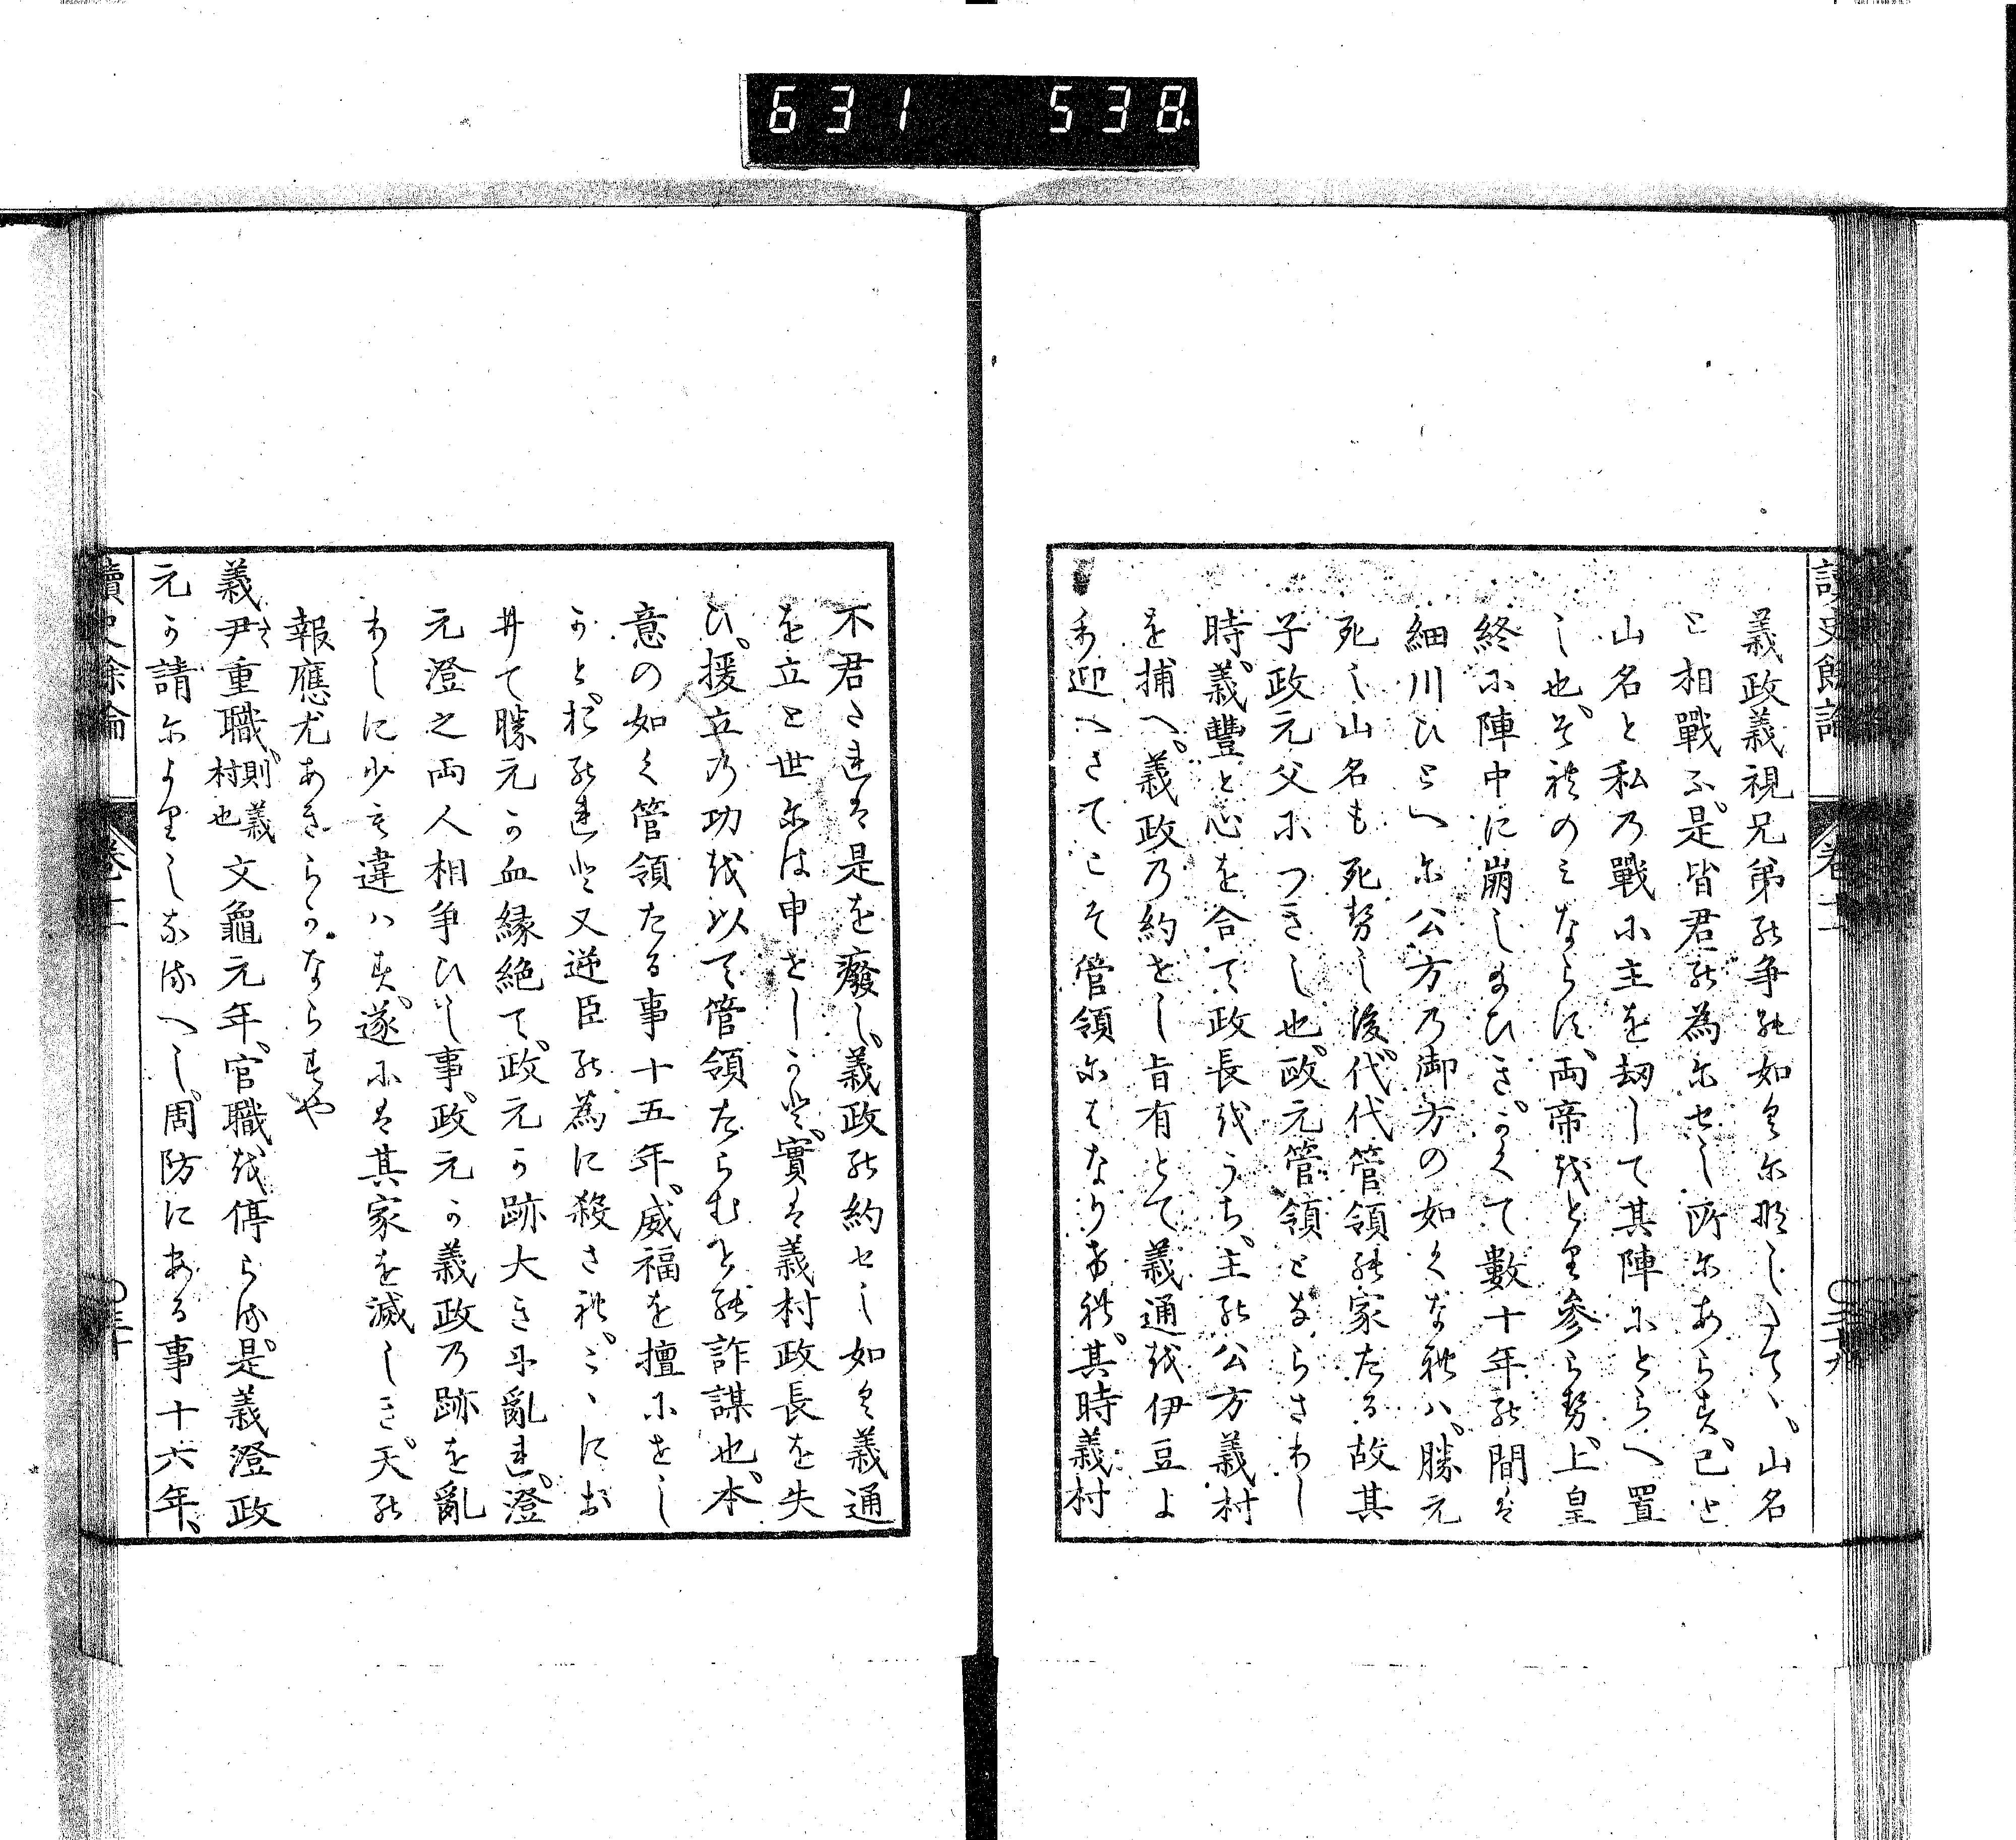 631 538
讀史餘論 卷十一 〇二十九
義政義視兄弟の争の如くに形しゝて、山名
と相戰ふ。是皆君の為にせし所にあらす。己と
山名と私の戰に主を刧して其陣にとらへ置
し也。それのみならす、両帝をとり参らせ、上皇
終に陣中に崩し給ひき。かくて數十年の間は
細川ひとへに公方の御方の如くなれハ、勝元
死し山名も死せし後、代代管領の家たる故其
子政元父につきし也。政元管領とならさりし
時、義豐と心を合て政長をうち、主の公方義村
を捕へ、義政の約せし旨有とて義通を伊豆よ
り迎へさてこそ管領にはなりけれ。其時義村
不君されは是を癈し、義政の約せし如く義通
を立と世には申せしかと、實は義村政長を失
ひ、援立の功を以て管領たらむとの詐謀也。本
意の如く管領たる事十五年、威福を擅にせし
かと、於のれと又逆臣の為に殺され、こゝにお
ゐて勝元か血縁絶て、政元か跡大きに亂れ、澄
元澄之両人相争ひし事、政元か義政の跡を亂
りしに少も違ハす、遂には其家を滅しき。天の
報應尤あきらかならすや
義尹重職、則義村也 文龜元年、官職を停らる。是義澄政
元か請によりしなるへし。周防にある事十六年、
讀史餘論 卷十一 〇三十